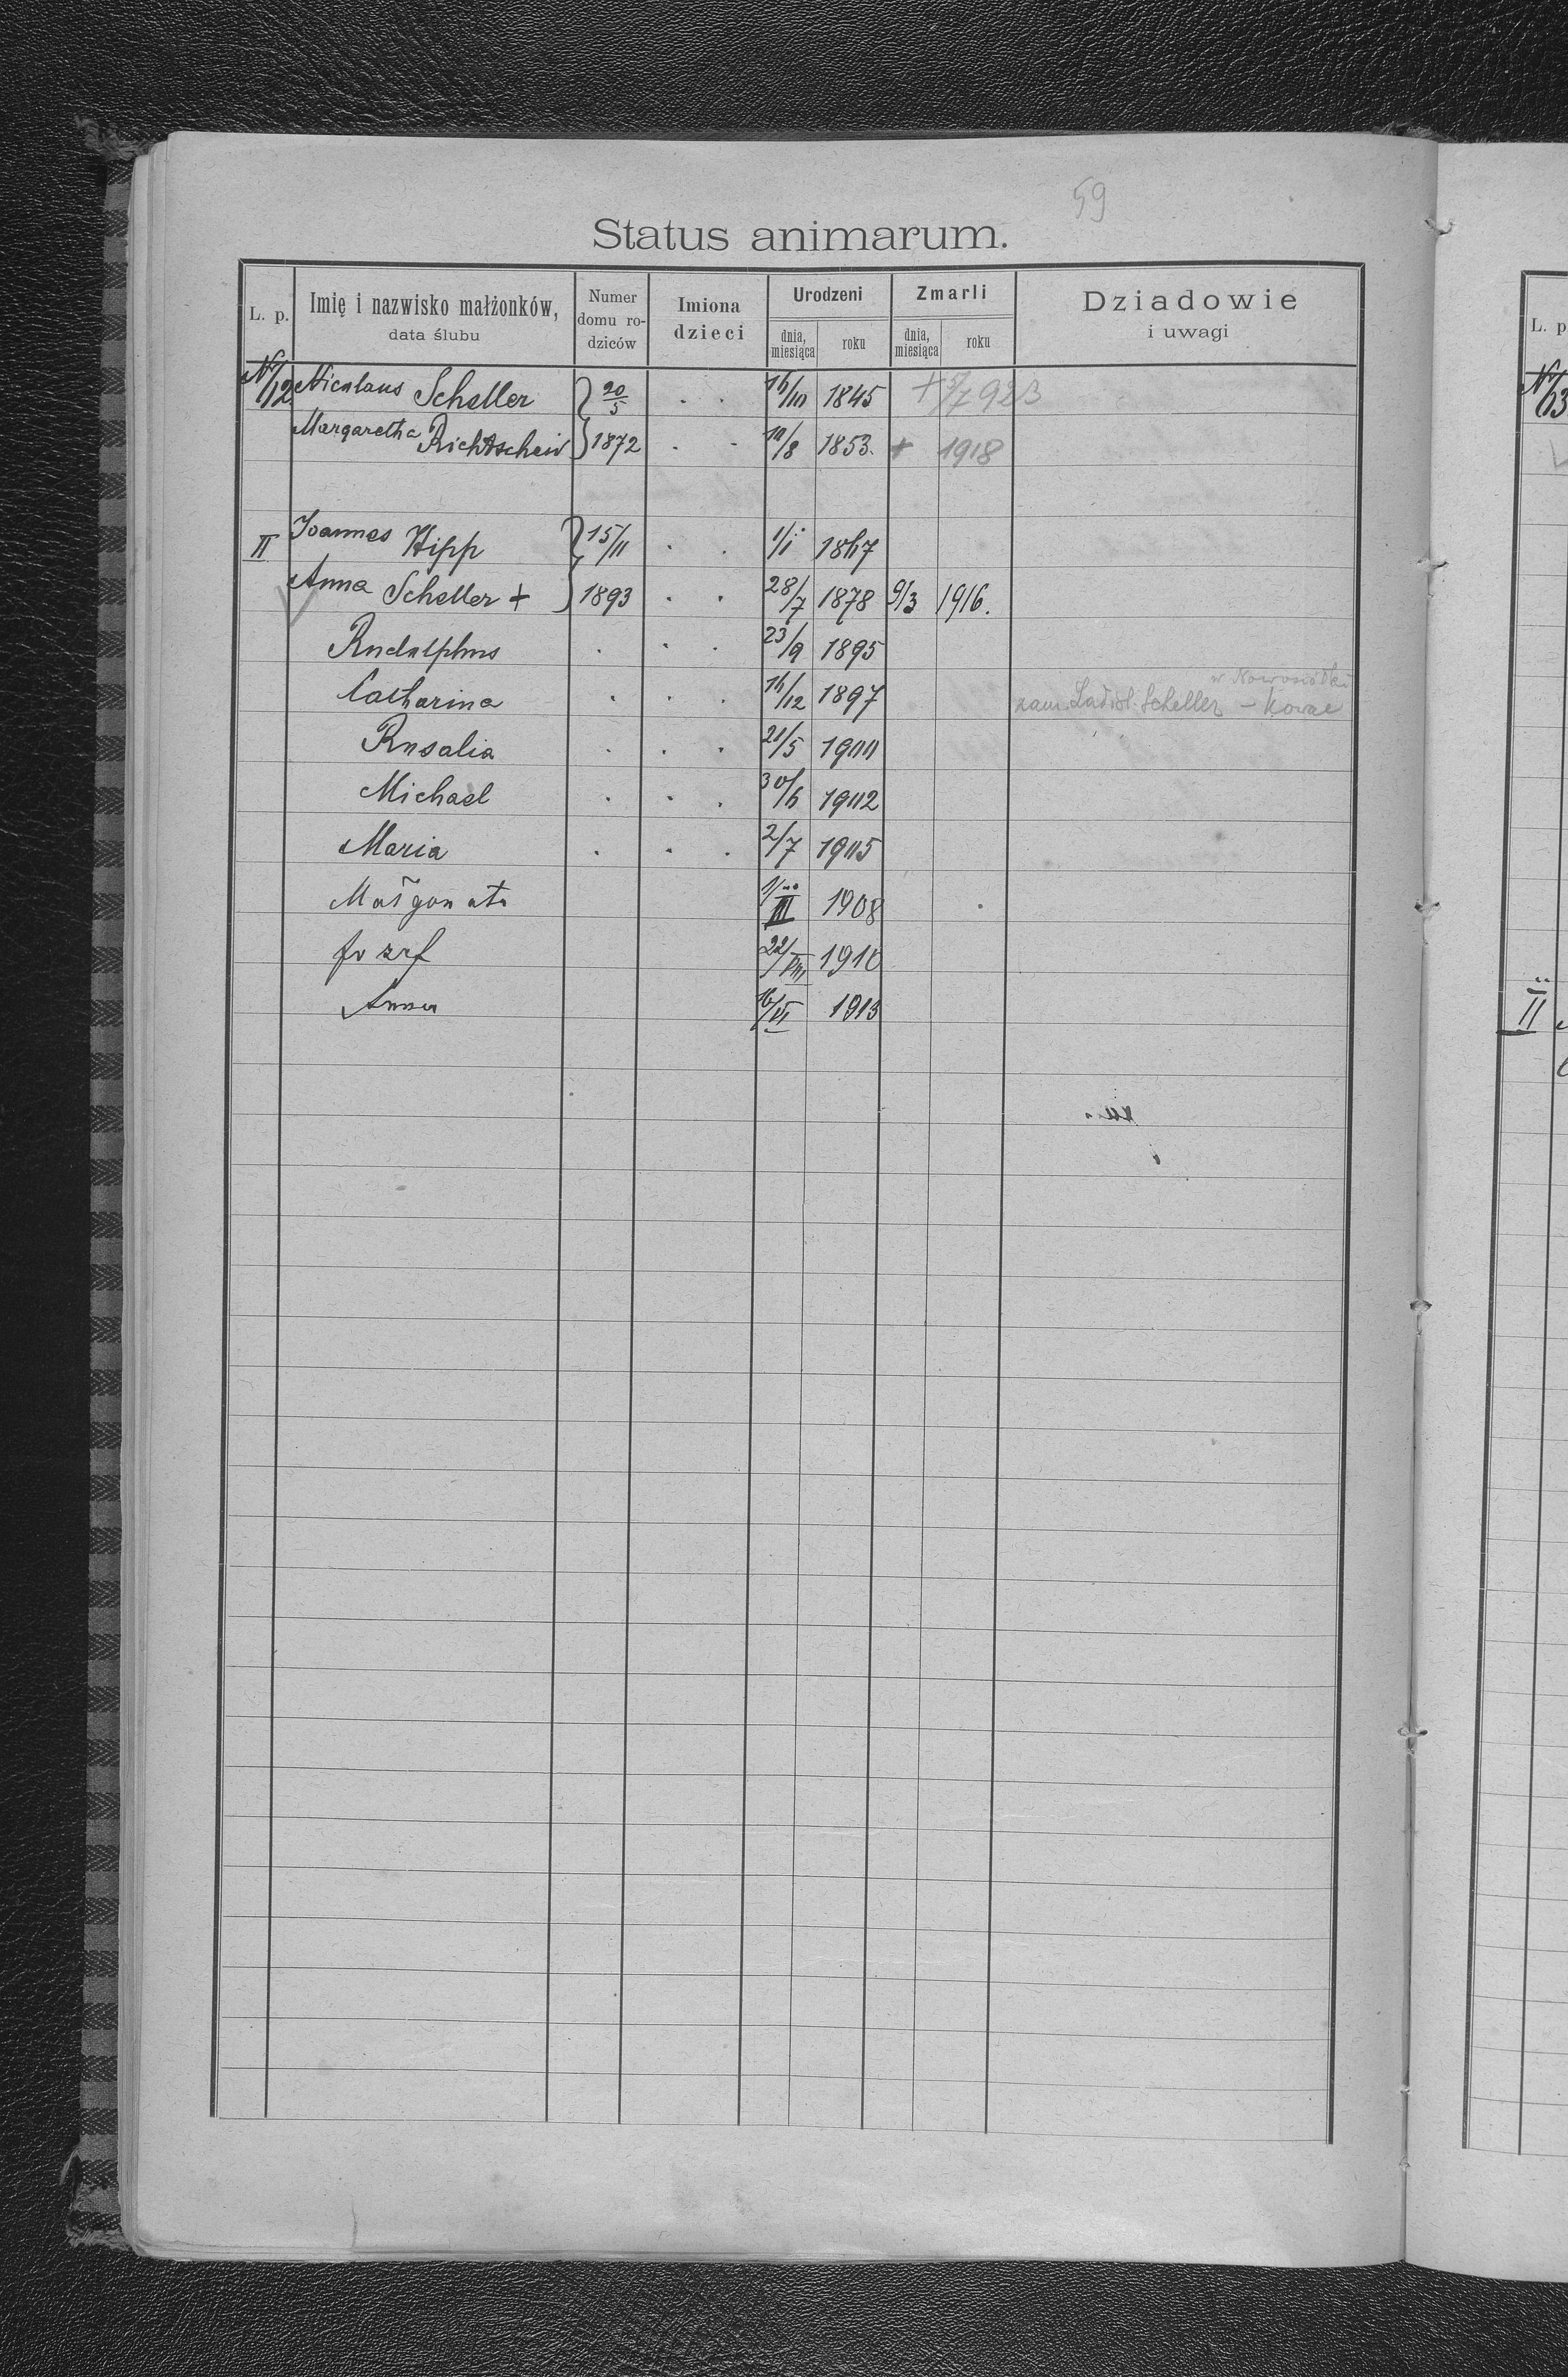 59
Status animarum.
L. p. Imię i nazwisko małżonków, data ślubu Numer domu rodziców Imiona dzieci Urodzeni dnia, miesiąca roku Zmarli dnia, miesiąca roku Dziadowie i uwagi
N/12 Nicolaus Scheller 20/5 . . 16/10 1845 + 5/7 923
Margaretha Richtscheid 1872 . . 10/8 1853. + 1918
II Joannes Hipp 15/11 . . 1/i 1867
Anna Scheller + 1893 . . 28/7 1878 9/3 1916.
Rudolphus . . . 23/9 1895
w Nowosiółki
Catharina . . . 16/12 1897 zam. Ladisl. Scheller – Kowal
Rosalia . . . 21/5 1900
Michael . . . 30/6 1902
Maria . . . 2/7 1905
1/III 1908
Jozef 22/VIII 1910
Anna 16/VI 1913
L. p
N/13
II